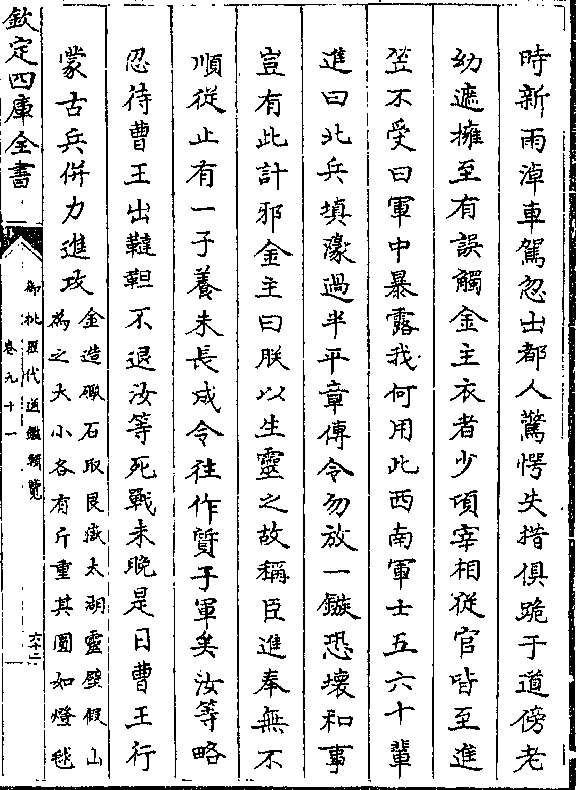 時新雨淖車駕忽出都人驚愕失措俱跪于道傍老
幼遮擁至有誤觸金主衣者少頃宰相從官皆至進
笠不受曰軍中暴露我何用此西南軍士五六十輩
進曰北兵填濠過半平章傳令勿放一鏃恐壞和事
豈有此計邪金主曰朕以生靈之故稱臣進奉無不
順從止有一子養未長成令往作質子軍矣汝等略
忍待曹王出韃靼不退汝等死戰未晚是日曹王行
蒙古兵併力進攻
金造礮石取艮嶽太湖靈壁假山
為之大小各有斤重其圓如燈毬
欽定四庫全書
御批歷代通鑑輯覽
卷九十一
六十二